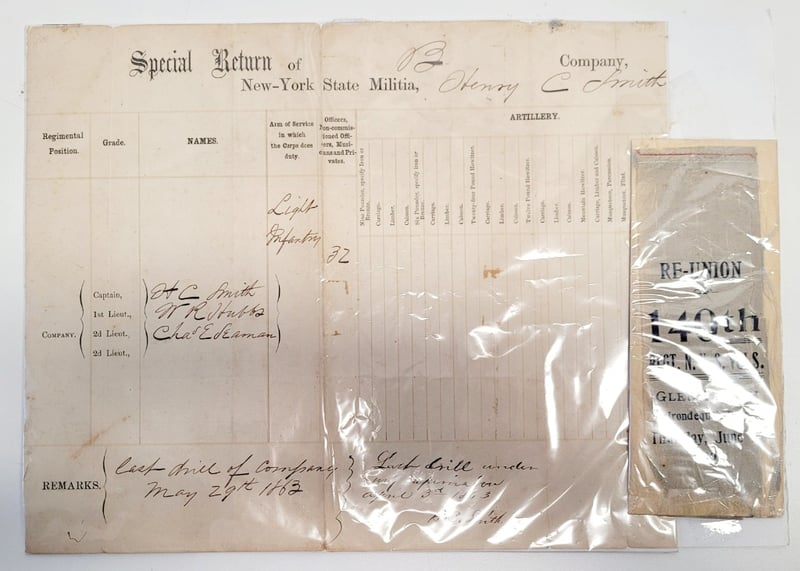 Special Return of B Company,
New-York State Militia, Henry C Smith
Regimental Position.
Grade.
NAMES.
Arm of Service in which the Corps does duty.
Officers, Non-commissioned Officers, Musicians and Privates.
ARTILLERY.
Nine Pounder, specify Iron or Bronze.
Carriage.
Limber.
Caisson.
Six Pounder, specify Iron or Bronze.
Carriage.
Limber.
Caisson.
Carriage.
Limber.
Caisson.
Twelve Pound Howitzer.
Carriage.
Limber.
Caisson.
Mountain Howitzer.
Carriage, Limber and Caisson.
Musquetoons, Percussion.
Musquetoons, Flint.
Light
Infantry
32
COMPANY.
Captain, H C Smith
1st Lieut., W R Hubbs
2d Lieut., Chas E Seaman
2d Lieut.,
REMARKS.
Last drill of Company
May 29th 1863
Last drill under
April 3d
RE-UNION
140th
REGT. N.Y.S. VOLS.
June